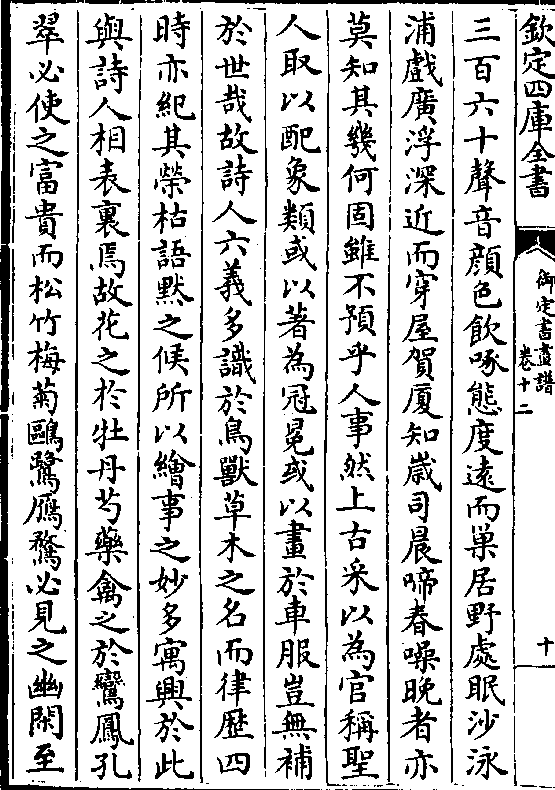 欽定四庫全書
御定書畫譜
卷十二
十
三百六十聲音顔色飲啄態度逺而巢居野處眠沙泳
浦戲廣浮深近而穿屋賀厦知嵗司晨啼春噪晩者亦
莫知其幾何固雖不預乎人事然上古采以為官稱聖
人取以配象類或以著為冠冕或以畫於車服豈無補
於世哉故詩人六義多識於鳥獸草木之名而律歴四
時亦紀其榮枯語黙之候所以繪事之妙多寓興於此
與詩人相表裏焉故花之於牡丹芍藥禽之於鸞鳳孔
翠必使之富貴而松竹梅菊鷗鷺鴈鶩必見之幽閑至